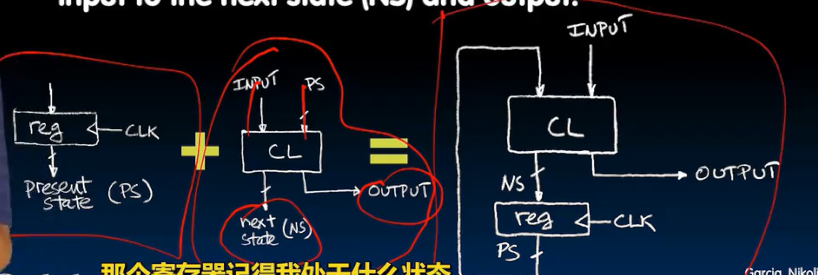 input to the next state (NS) and output.
reg
CLK
present
state (PS)
+
INPUT
PS
CL
OUTPUT
next
state (NS)
=
INPUT
CL
OUTPUT
NS
reg
CLK
PS
那个寄存器记得我处于什么状态
Garcia, Nikoli